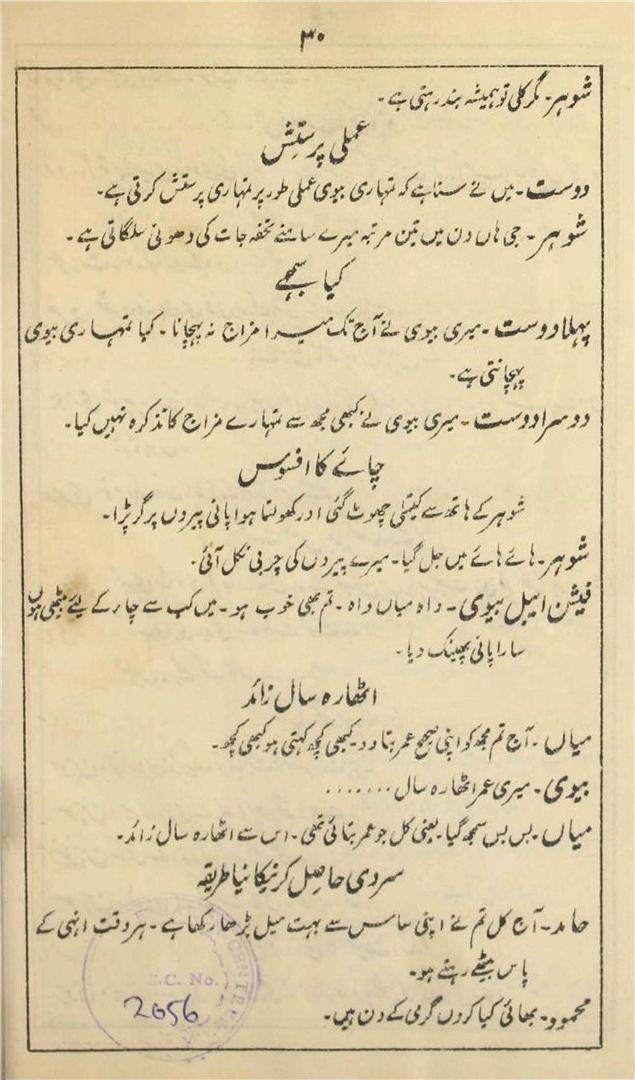 ۳۰
شوہر۔ مگر کلی تو ہمیشہ بند رہتی ہے۔
عملی پرستِش
دوست۔ میں نے سنا ہے کہ تمہاری بیوی عملی طور پر تمہاری پرستش کرتی ہے۔
شوہر۔ جی ہاں دن میں تین مرتبہ میرے سامنے تحفہ جات کی دھونی سلگاتی ہے۔
کیا سمجھے
پہلا دوست۔ میری بیوی نے آج تک میرا مزاج نہ پہچانا۔ کیا تمہاری بیوی
پہچانتی ہے۔
دوسرا دوست۔ میری بیوی نے کبھی مجھ سے تمہارے مزاج کا تذکرہ نہیں کیا۔
چائے کا افسوس
شوہر کے ہاتھ سے کیتلی چھوٹ گئی اور کھولتا ہوا پانی پیروں پر گر پڑا۔
شوہر۔ ہائے ہائے میں جل گیا۔ میرے پیروں کی چربی نکل آئی۔
فیشن ایبل بیوی۔ واہ میاں واہ۔ تم بھی خوب ہو۔ میں کب سے چار کے لیے بیٹھی ہوں
سارا پانی پھینک دیا۔
اٹھارہ سال زائد
میاں۔ آج تم مجھ کو اپنی صحیح عمر بتا دو۔ کبھی کچھ کہتی ہو کبھی کچھ۔
بیوی۔ میری عمر اٹھارہ سال .......
میاں۔ بس بس سمجھ گیا۔ یعنی کل جو عمر بتائی تھی۔ اس سے اٹھارہ سال زائد۔
سردی حاصل کرنیکا نیا طریقہ
حامد۔ آج کل تم نے اپنی ساس سے بہت میل بڑھا رکھا ہے۔ ہر وقت انہی کے
پاس بیٹھے رہتے ہو۔
محمود۔ بھائی کیا کروں گرمی کے دن ہیں۔
CENTR
C. No.
2056